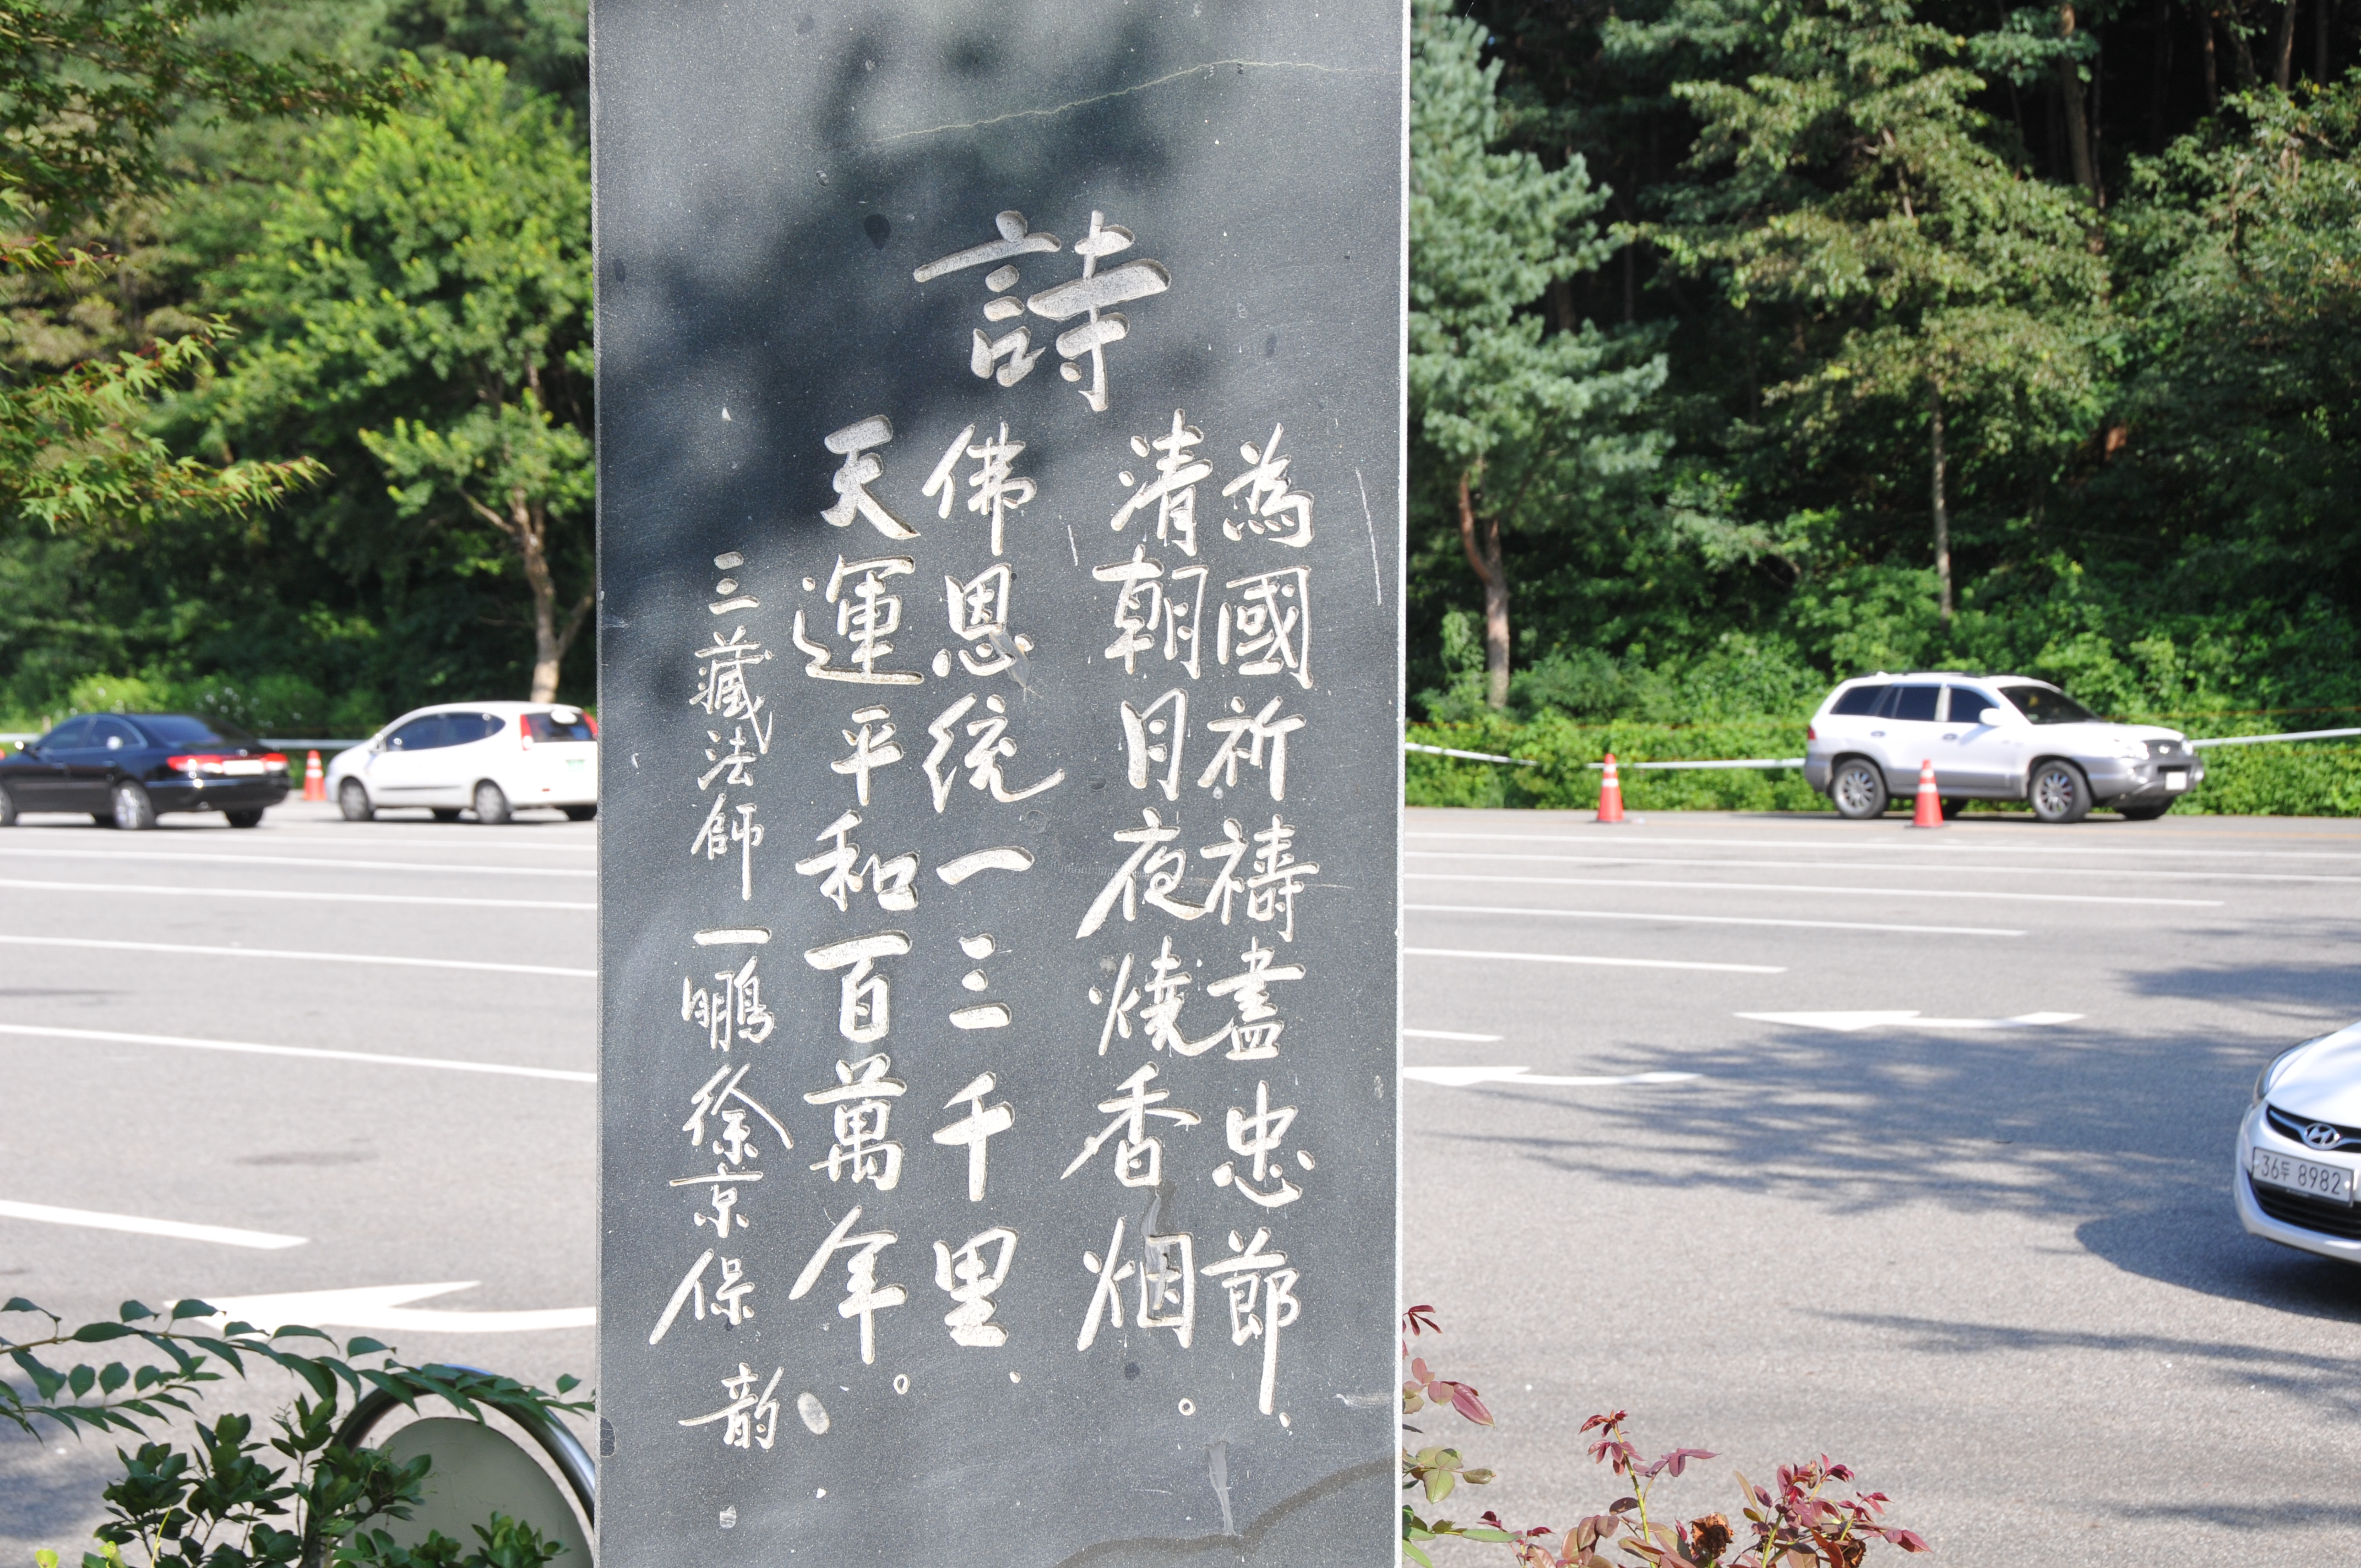 詩
為國祈禱盡忠節、
清朝月夜燒香烟。
佛恩統一三千里、
天運平和百萬年。
三藏法師 一鵬徐京保 韵
36두 8982